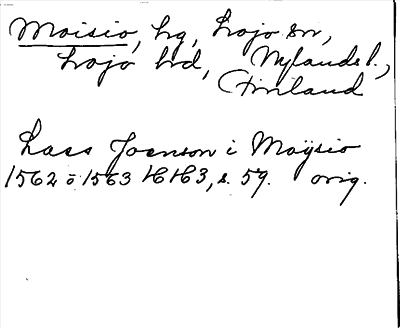 Moisio, hg, Lojo sn,
Lojo hd, Nylands l.,
Finland
Lass Joenson i Moÿsio
1562 o 1563 HH3, s. 59. orig.